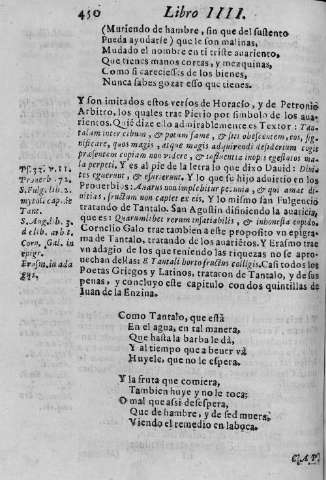 450 Libro IIII.
(Muriendo de hambre, sin que del sustento
Pueda ayudarse) que le son malinas,
Mudado el nombre en ti triste auariento,
Que tienes manos cortas, y mezquinas,
Como si careciesses de los bienes,
Nunca sabes gozar esso que tienes.
Y son imitados estos versos de Horacio, y de Petronio
Arbitro, los quales trae Pierio por simbolo de los aua-
rientos. Quié dize ello admirablemente es Textor: Tan-
talum inter cibum, & potum fame, & siti obsessum, nos, sig-
nificare, quos magis, atque magis adquirendi desiderium cogit
præsentem copiam non videre, & sustentia inopis egestatis ma-
la perpeti. Y es al pie de la letra lo que dixo Dauid: Diui-
tes eguerunt, & esurierunt. Y lo que su hijo aduirtio en los
Prouerbios: Auarus non implebitur pecunia, & qui amat di-
uitias, fructum non capiet ex eis. Y lo mismo san Fulgencio
tratando de Tantalo. San Agustin difiniendo la auaricia,
que es: Quarumlibet rerum insatiabilis, & inhonesta cupido.
Cornelio Galo trae tambien a este proposito vn epigra-
ma de Tantalo, tratando de los auariétos. Y Erasmo trae
vn adagio de los que teniendo las riquezas no se apro-
uechan dellas: E Tantali horto fructus colligis. Casi todos los
Poetas Griegos y Latinos, trataron de Tantalo, y de sus
penas, y concluyo este capitulo con dos quintillas de
Iuan de la Enzina.
Ps. 33. v. 11.
Prouerb.
S. Fulg. lib. 2.
mytoli. cap. de
Tant.
S. Aug. lib. 3.
d elib. arb.
Corn. Gal. in
epigr.
Erasm. in ada
gijs.
Como Tantalo, que està
En el agua, en tal manera,
Que hasta la barba le dà,
Y al tiempo que a beuer và
Huyele, que no le espera.
Y la fruta que comiera,
Tambien huye y no le toca;
O mal que assi desespera,
Que de hambre, y de sed muera,
Viendo el remedio en la boca.
CAP.